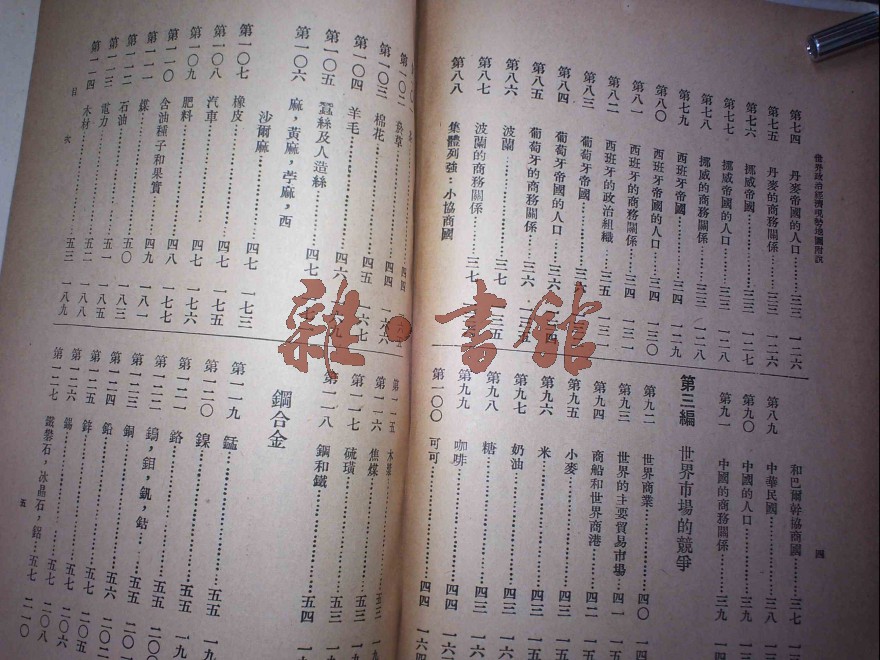 世界政治經濟現勢地圖附説
四
第七四 丹麥帝國的人口……三三 一二六
第七五 丹麥的商務關係……三三 一二六
第七六 挪威帝國……三三 一二七
第七七 挪威帝國的人口……三三 一二八
第七八 挪威的商務關係……三三 一二八
第七九 西班牙帝國……三四 一二九
第八〇 西班牙帝國的人口……三四 一三〇
第八一 西班牙的商務關係……三四 一三一
第八二 西班牙的政治組織……三五 一三一
第八三 葡萄牙帝國……三六
第八四 葡萄牙帝國的人口……
第八五 葡萄牙的商務關係……三六
第八六 波蘭……三七
第八七 波蘭的商務關係……三七
第八八 集體列強:小協商國
和巴爾幹協商國……三七
第八九 中華民國……三八
第九〇 中國的人口……三九
第九一 中國的商務關係……三九
第三編 世界市場的競爭
第九二 世界商業……四〇
第九三 世界的主要貿易市場……四一
第九四 商船和世界商港……四二
第九五 小麥……四三
第九六 米……四三
第九七 奶油……四三
第九八 糖……四三
第九九 咖啡……四四
第一〇〇 可可……四四 一六四
第一〇二 菸草……四四
第一〇三 棉花……四四 一六六
第一〇四 羊毛……四五 一六七
第一〇五 蠶絲及人造絲……四六
第一〇六 麻,黃麻,苧麻,西
沙爾麻……四七
第一〇七 橡皮……四七 一七三
第一〇八 汽車……四七 一七五
第一〇九 肥料……四七 一七六
第一一〇 含油種子和果實……四八 一七七
第一一一 煤……四九 一八一
第一一二 石油……五〇 一八三
第一一三 電力……五一 一八五
第一一四 木材……五二 一八八
五三 一八九
第一一五 木漿……五三
第一一六 焦煤……五三
第一一七 硫磺……五三
第一一八 鋼和鐵……五四
鋼合金
第一一九 錳……五五
第一二〇 鎳……五五
第一二一 鉻……五五
第一二二 鎢,鉬,釩,鈷……五五 二〇〇
第一二三 銅……五五
第一二四 鉛……五六
第一二五 鋅……五七 二〇五
第一二六 錫……五七 二〇六
第一二七 鐵礬石,冰晶石,鋁……五七 二〇八
二一〇
目 次
五
雜·書館